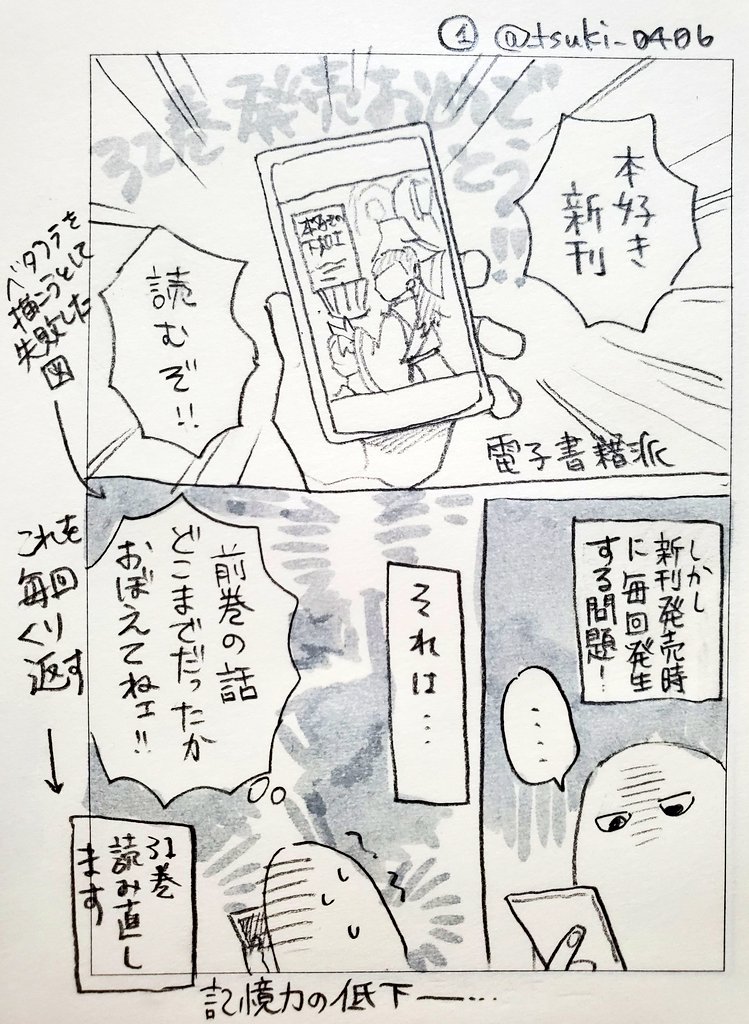 ① @tsuki_0406
32巻発売おめで
とう!!
本好き
新刊
本好きの
下剋上
読むぞ!!
電子書籍派
ベタフラを
描こうとして
失敗した
図
しかし
新刊発売時
に毎回発生
する問題!
....
それは…
前巻の話
どこまでだったか
おぼえてねェ!!
これを
毎回
くり
返す
31巻
読み直し
ます
記憶力の低下ー…